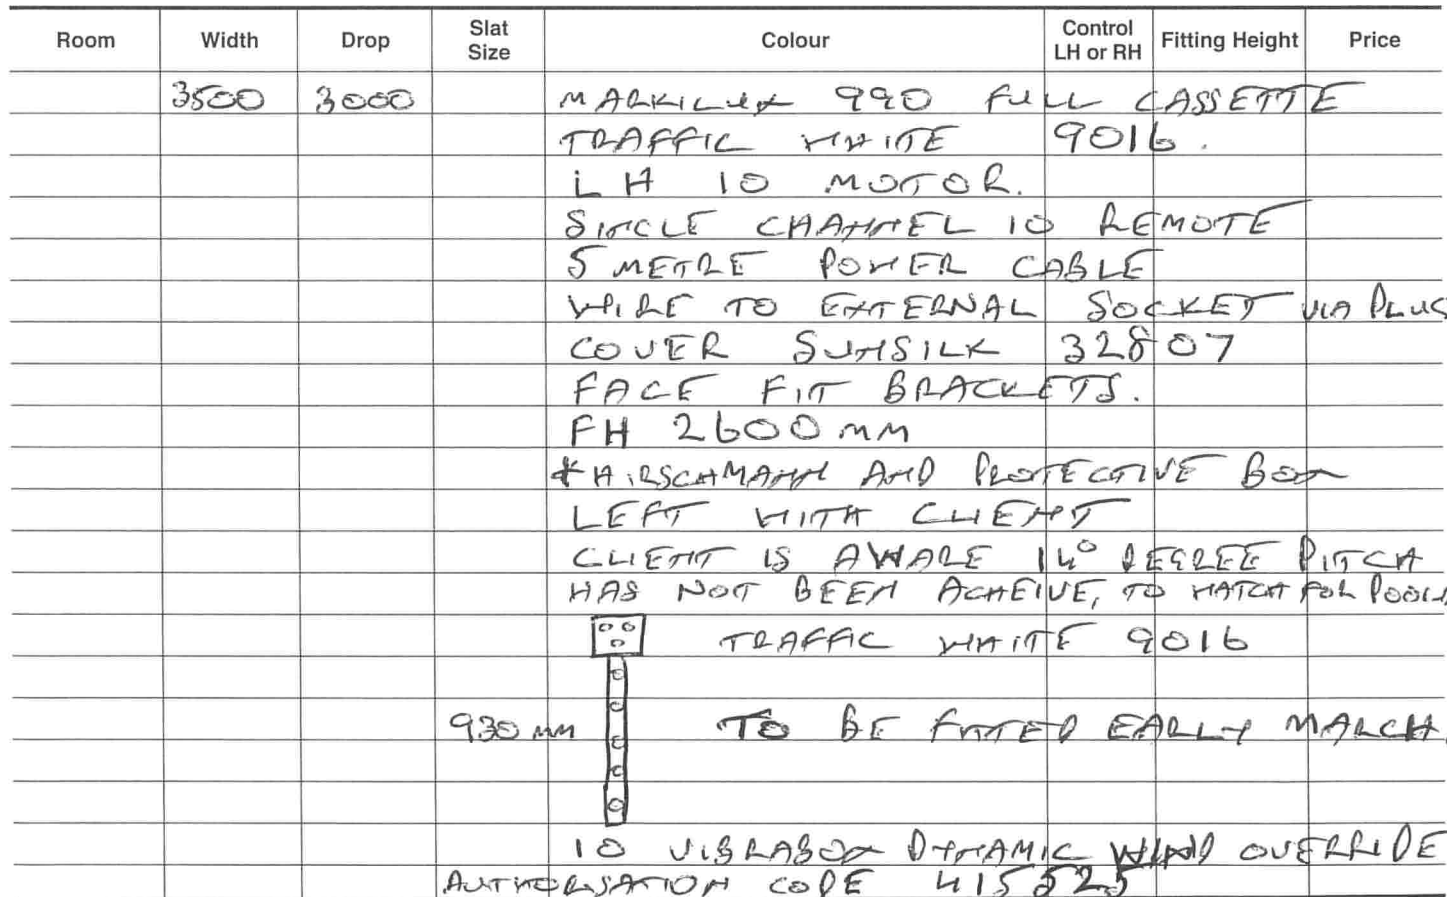 Room Width Drop Slat Size Colour Control LH or RH Fitting Height Price
3500 3000 MARKILUX 990 FULL CASSETTE
TRAFFIC WHITE 9016.
LH IO MOTOR.
SINGLE CHANNEL IO REMOTE
5 METRE POWER CABLE
WIRE TO EXTERNAL SOCKET VIA PLUG
COVER SUNSILK 32807
FACE FIT BRACKETS.
FH 2600 MM
*HIRSCHMANN AND PROTECTIVE BOX
LEFT WITH CLIENT
CLIENT IS AWARE 14° DEGREE PITCH
HAS NOT BEEN ACHEIVE, TO HATCH FOR
TRAFFIC WHITE 9016
930 MM TO BE FITTED EARLY MARCH.
IO VIBRABOX DYNAMIC WIND OVERRIDE
AUTHORISATION CODE 415525